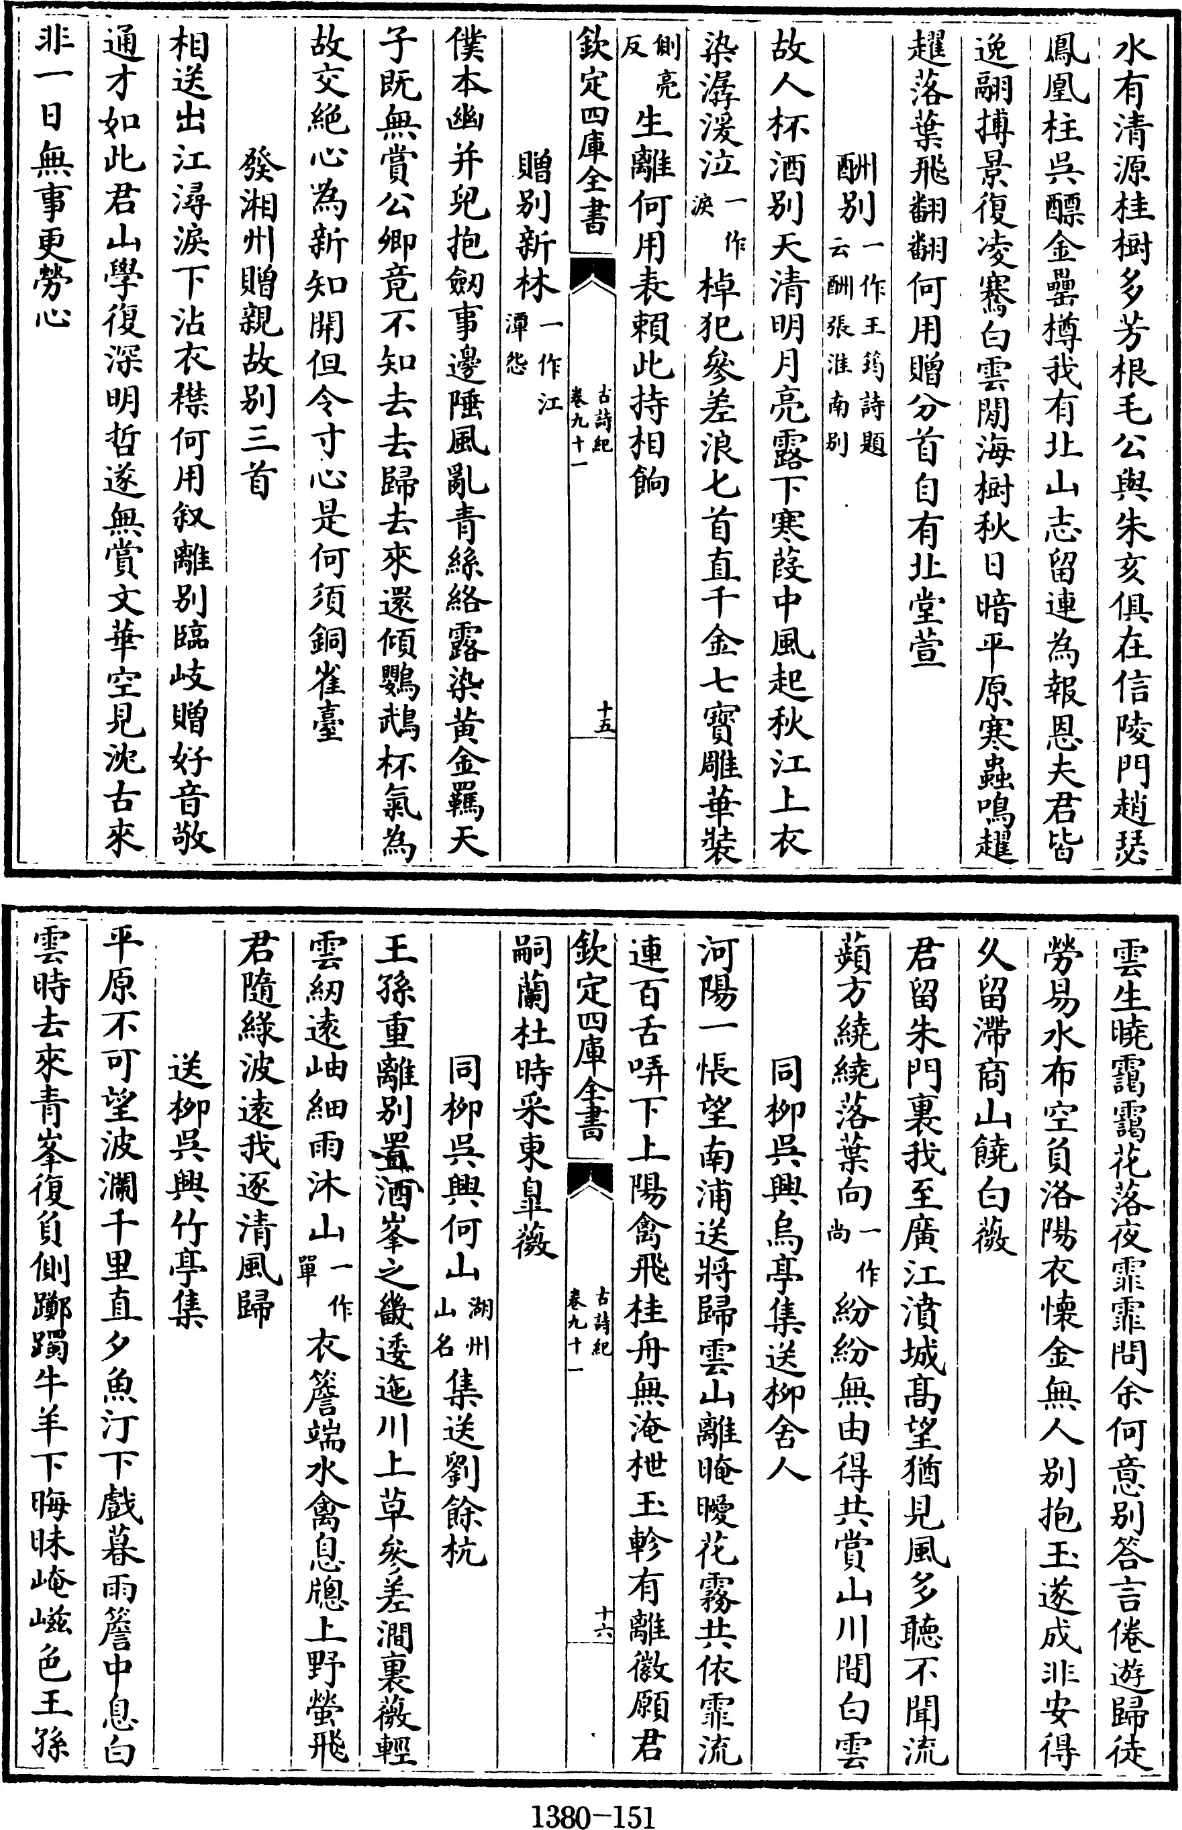 水有清源桂樹多芳根毛公與朱亥俱在信陵門趙瑟
鳳凰柱吳醥金罍樽我有北山志留連為報恩夫君皆
逸翮摶景復凌騫白雲閒海樹秋日暗平原寒蟲鳴趯
趯落葉飛翻翻何用贈分首自有北堂萱
酬別一作王筠詩題云酬張淮南別
故人杯酒別天清明月亮露下寒葭中風起秋江上衣
染潺湲泣一作淚棹犯參差浪匕首直千金七寶雕華裝
側亮反生離何用表賴此持相餉
欽定四庫全書 古詩紀卷九十一 十五
贈別新林一作江潭怨
僕本幽并兒抱劒事邊陲風亂青絲絡露染黃金羈天
子既無賞公卿竟不知去去歸去來還傾鸚鵡杯氣為
故交絕心為新知開但令寸心是何須銅雀臺
發湘州贈親故別三首
相送出江潯淚下沾衣襟何用叙離別臨岐贈好音敬
通才如此君山學復深明哲遂無賞文華空見沈古來
非一日無事更勞心
雲生曉靄靄花落夜霏霏問余何意別答言倦遊歸徒
勞易水布空負洛陽衣懷金無人別抱玉遂成非安得
久留滯商山饒白薇
君留朱門裏我至廣江濆城髙望猶見風多聽不聞流
蘋方繞繞落葉向一作尚紛紛無由得共賞山川間白雲
同柳吳興烏亭集送柳舍人
河陽一悵望南浦送將歸雲山離晻曖花霧共依霏流
連百舌哢下上陽禽飛桂舟無淹枻玉軫有離徽願君
欽定四庫全書 古詩紀卷九十一 十六
嗣蘭杜時采東臯薇
同柳吳興何山湖州山名集送劉餘杭
王孫重離別置酒峯之畿逶迤川上草參差澗裏薇輕
雲紉遠岫細雨沐山一作單衣簷端水禽息牕上野螢飛
君隨綠波遠我逐清風歸
送柳吳興竹亭集
平原不可望波瀾千里直夕魚汀下戲暮雨簷中息白
雲時去來青峯復負側躑躅牛羊下晦昧崦嵫色王孫
1380-151